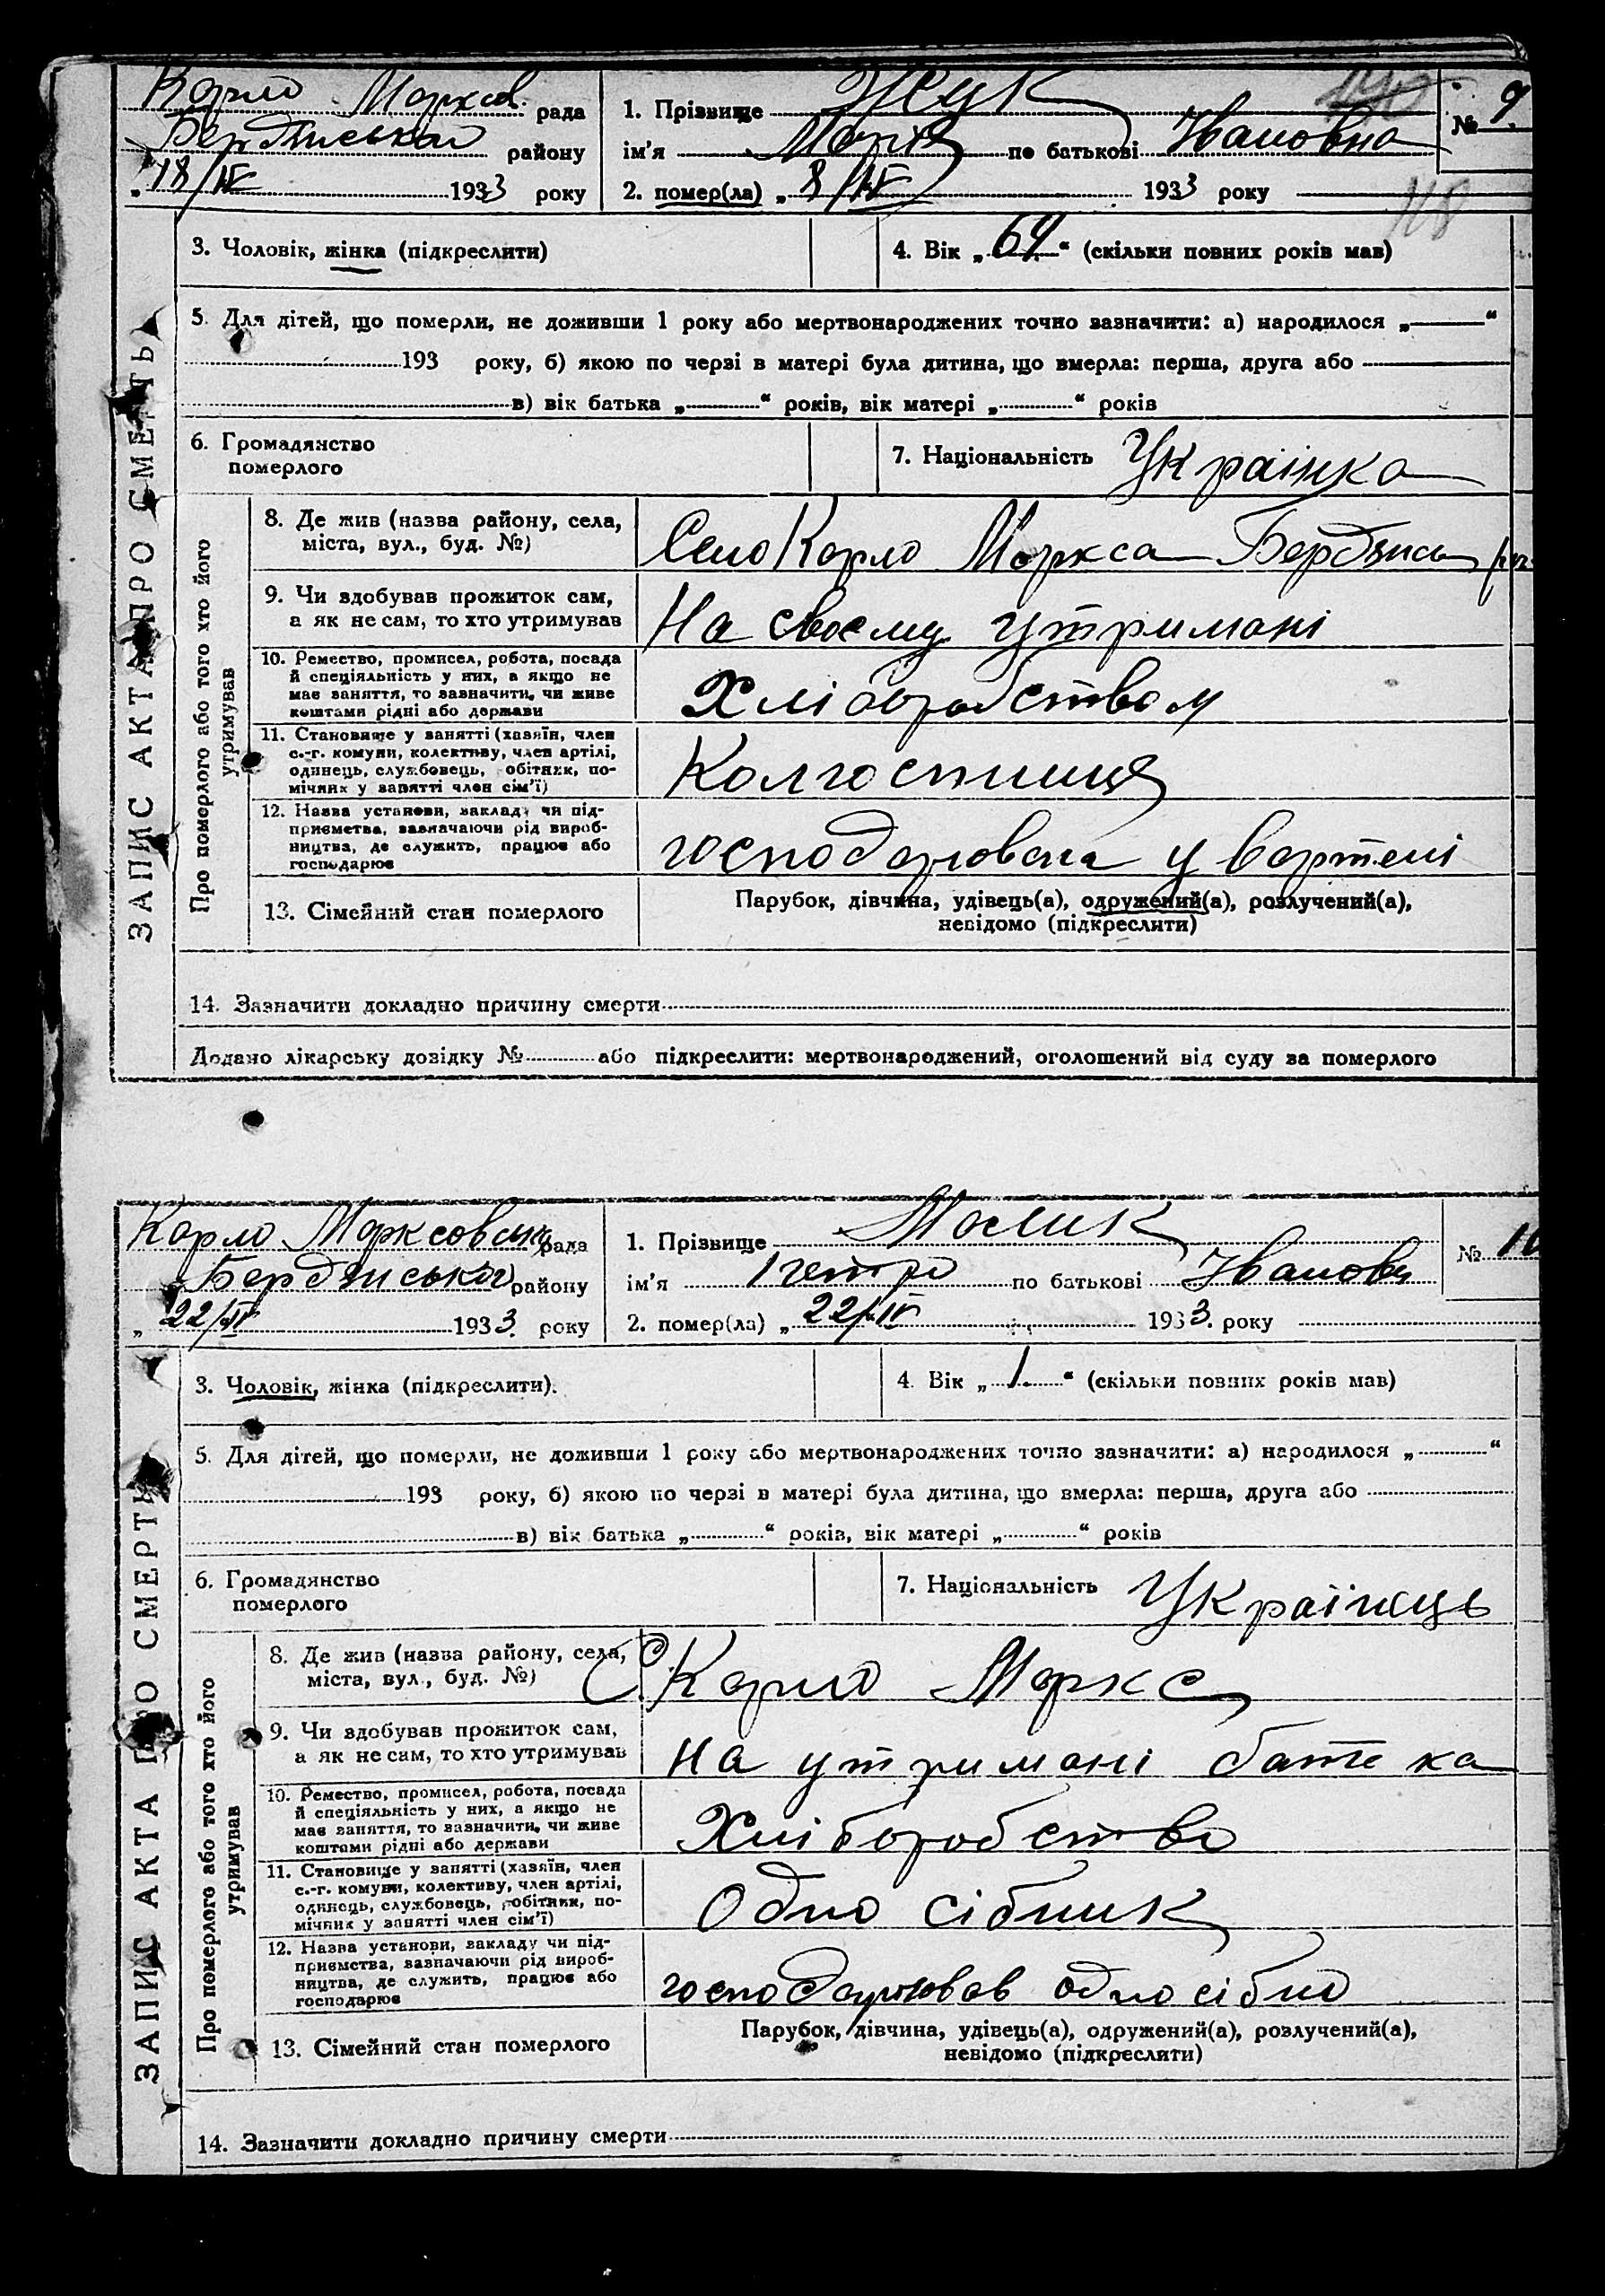 Карло Марксов. рада
Бердянської району
„18/IV 1933 року
1. Прізвище Жук
ім'я Марія по батькові Івановна
2. помер(ла) „8/IV 1933 року
№ 9
118
3. Чоловік, жінка (підкреслити)
4. Вік „64“ (скільки повних років мав)
5. Для дітей, що померли, не доживши 1 року або мертвонароджених точно зазначити: а) народилося „ “
193 року, б) якою по черзі в матері була дитина, що вмерла: перша, друга або
в) вік батька „ “ років, вік матері „ “ років
6. Громадянство
померлого
7. Національність Украінка
ЗАПИС АКТА ПРО СМЕРТЬ
Про померлого або того хто його
утримував
8. Де жив (назва району, села,
міста, вул., буд. №)
Село Карло Маркса Бердянськ
9. Чи здобував прожиток сам,
а як не сам, то хто утримував
На своєму утримані
10. Ремество, промисел, робота, посада
й спеціяльність у них, а якщо не
має заняття, то зазначити, чи живе
коштами рідні або держави
Хліборобством
11. Становище у занятті (хазяїн, член
с.-г. комуни, колективу, член артілі,
одинець, службовець, робітник, по-
мічник у занятті член сім'ї)
Колгоспниця
12. Назва установи, закладу чи під-
приємства, зазначаючи рід вироб-
ництва, де служить, працює або
господарює
господарювала у вартелі
13. Сімейний стан померлого
Парубок, дівчина, удівець(а), одружений(а), розлучений(а),
невідомо (підкреслити)
14. Зазначити докладно причину смерти
Додано лікарську довідку № або підкреслити: мертвонароджений, оголошений від суду за померлого
Карло Марксовська рада
Бердянської району
„22/IV 1933. року
1. Прізвище Масик
ім'я Петро по батькові Іванови
2. помер(ла) „22/IV 1933. року
№ 10
3. Чоловік, жінка (підкреслити).
4. Вік „1.“ (скільки повних років мав)
5. Для дітей, що померли, не доживши 1 року або мертвонароджених точно зазначити: а) народилося „ “
193 року, б) якою по черзі в матері була дитина, що вмерла: перша, друга або
в) вік батька „ “ років, вік матері „ “ років
6. Громадянство
померлого
7. Національність Украінець
ЗАПИС АКТА ПРО СМЕРТЬ
Про померлого або того хто його
утримував
8. Де жив (назва району, села,
міста, вул., буд. №)
С. Карло Маркса
9. Чи здобував прожиток сам,
а як не сам, то хто утримував
на утримані батька
10. Ремество, промисел, робота, посада
й спеціяльність у них, а якщо не
має заняття, то зазначити, чи живе
коштами рідні або держави
Хліборобство
11. Становище у занятті (хазяїн, член
с.-г. комуни, колективу, член артілі,
одинець, службовець, робітник, по-
мічник у занятті член сім'ї)
Одно сібник
12. Назва установи, закладу чи під-
приємства, зазначаючи рід вироб-
ництва, де служить, працює або
господарює
господарював одно сібно
13. Сімейний стан померлого
Парубок, дівчина, удівець(а), одружений(а), розлучений(а),
невідомо (підкреслити)
14. Зазначити докладно причину смерти